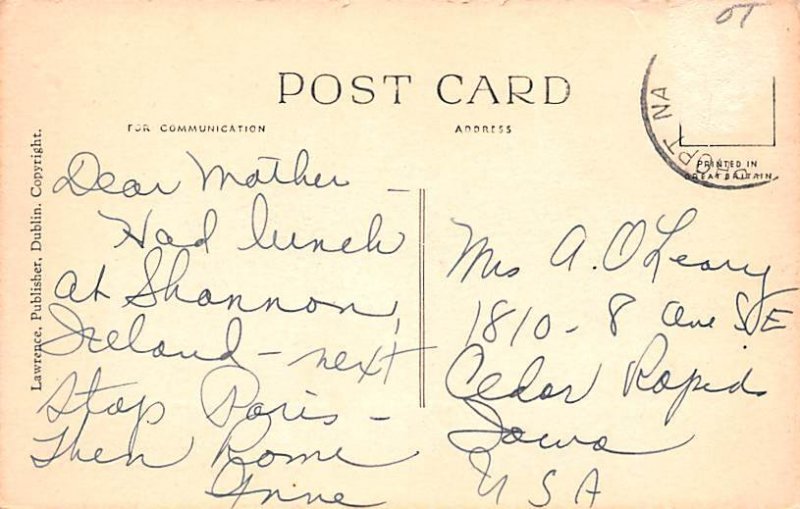 OT
POST CARD
FOR COMMUNICATION
ADDRESS
PRINTED IN
GREAT BRITAIN
Lawrence, Publisher, Dublin. Copyright.
Dear Mother –
Had lunch
at Shannon,
Ireland – next
Stop Paris –
Then Rome
Anne
Mrs A. O'Leary
1810 - 8 Ave SE
Cedar Rapids
Iowa
USA